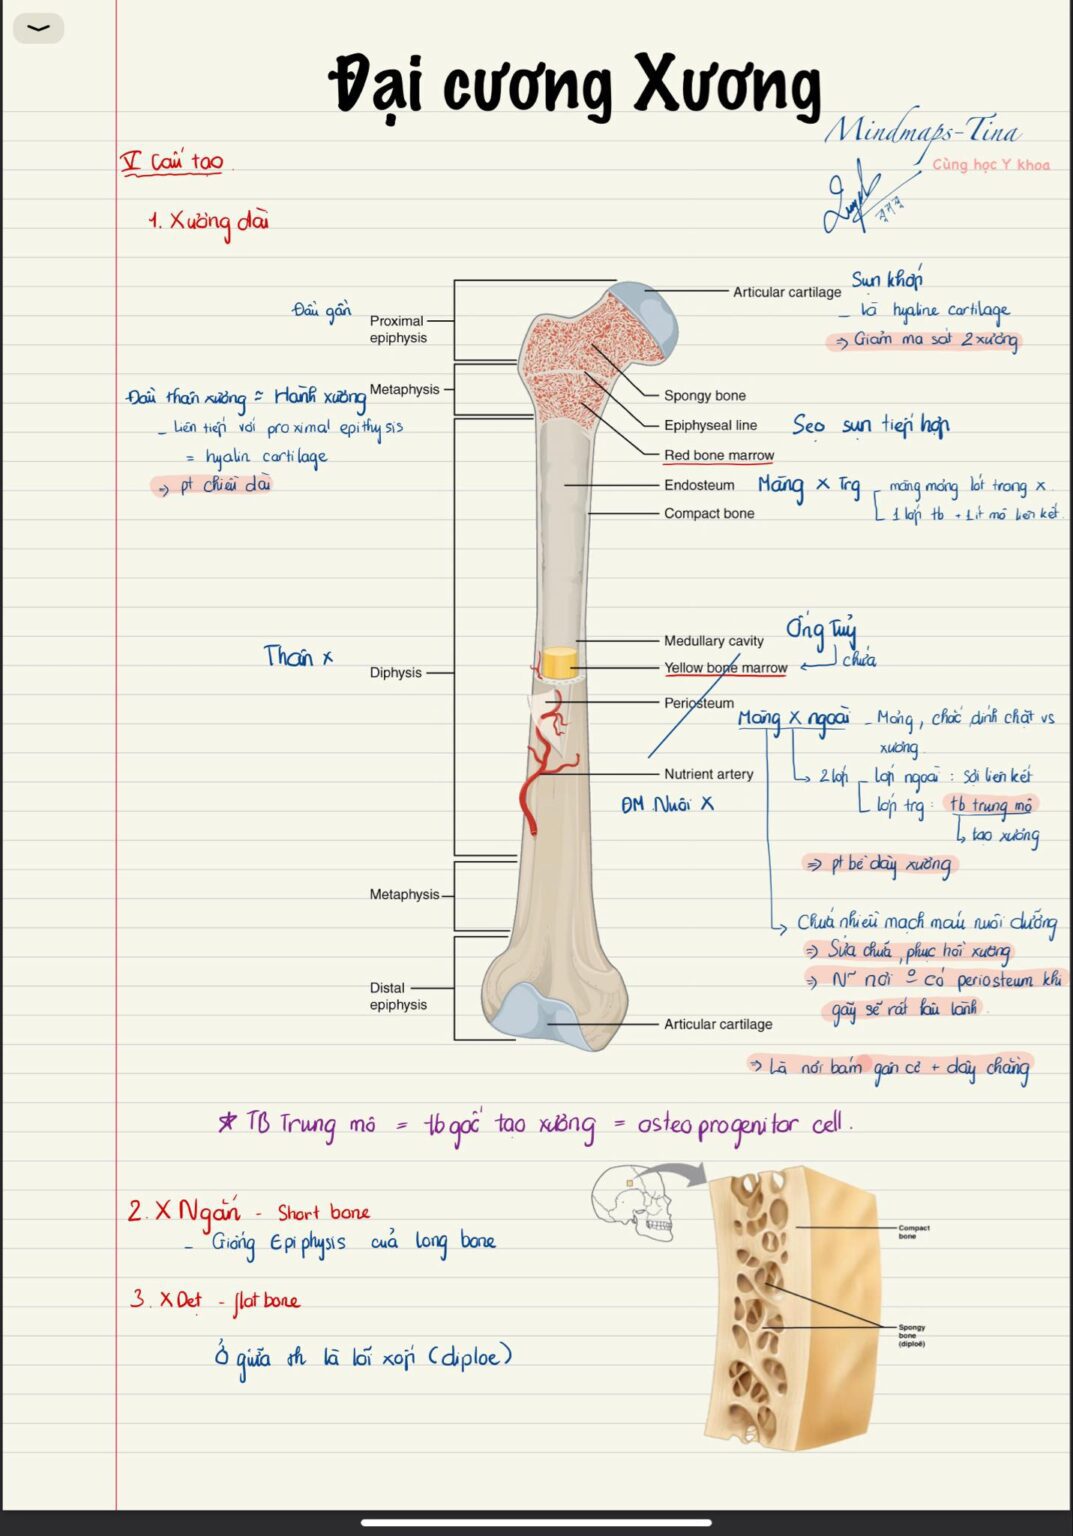 Đại cương Xương
Mindmaps-Tina
Cùng học Y khoa
V Cấu tạo
1. Xương dài
Đầu gần
Proximal
epiphysis
Articular cartilage
Sụn khớp
- là hyaline cartilage
=> Giảm ma sát 2 xương
Metaphysis
Đầu thân xương = Hành xương
- Liên tiếp với proximal epithysis
= hyalin cartilage
=> pt chiều dài
Spongy bone
Epiphyseal line
Sẹo sụn tiếp hợp
Red bone marrow
Endosteum
Màng x Trg
màng mỏng lót trong x.
1 lớp tb + 1 ít mô liên kết.
Compact bone
Thân x
Diphysis
Medullary cavity
Ống Tuỷ
chứa
Yellow bone marrow
Periosteum
Màng x ngoài
- Mỏng, chắc, dính chặt vs
xương.
Nutrient artery
ĐM Nuôi X
2 lớp
Lớp ngoài : sợi liên kết
lớp trg : tb trung mô
tạo xương
=> pt bề dày xương
Metaphysis
Chứa nhiều mạch máu nuôi dưỡng
=> Sửa chữa, phục hồi xương
=> N~ nơi o có periosteum khi
gãy sẽ rất lâu lành.
Distal
epiphysis
Articular cartilage
=> Là nơi bám gân cơ + dây chằng
* TB Trung mô = tb gốc tạo xương = osteoprogenitor cell.
2. X Ngắn - Short bone
- Giống Epiphysis của long bone
3. X Dẹt - flat bone
Ở giữa là lõi xốp (diploe)
Compact
bone
Spongy
bone
(diploë)